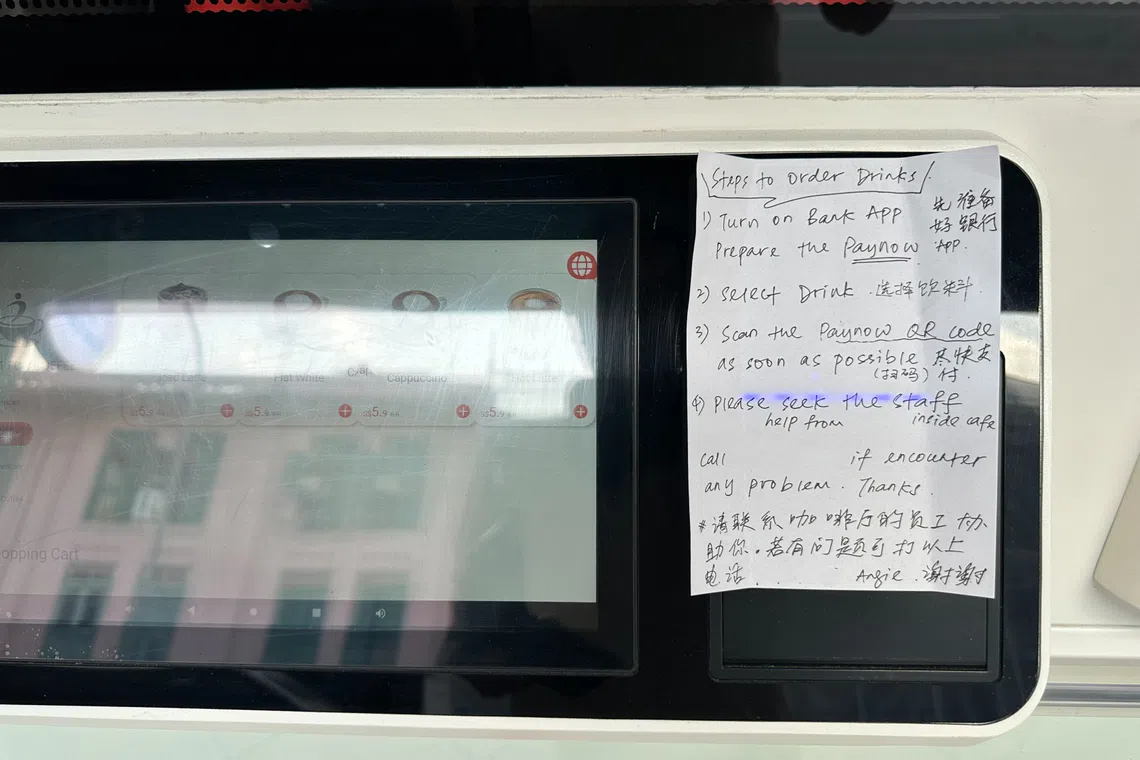 Steps to order Drinks
1) Turn on Bank APP 先准备
Prepare the Paynow 好银行
APP.
2) Select Drink. 选择饮料.
3) Scan the Paynow QR code
as soon as possible 尽快支
(扫码) 付.
4) Please seek the staff
help from inside cafe
call if encounter
any problem. Thanks.
*请联系咖啡厅的员工协
助你。若有问题可打以上
电话. Angie. 谢谢
Iced Latte
Flat White
Cappuccino
Hot Latte
S$5.9
S$5.9
S$5.9
S$5.9
opping Cart